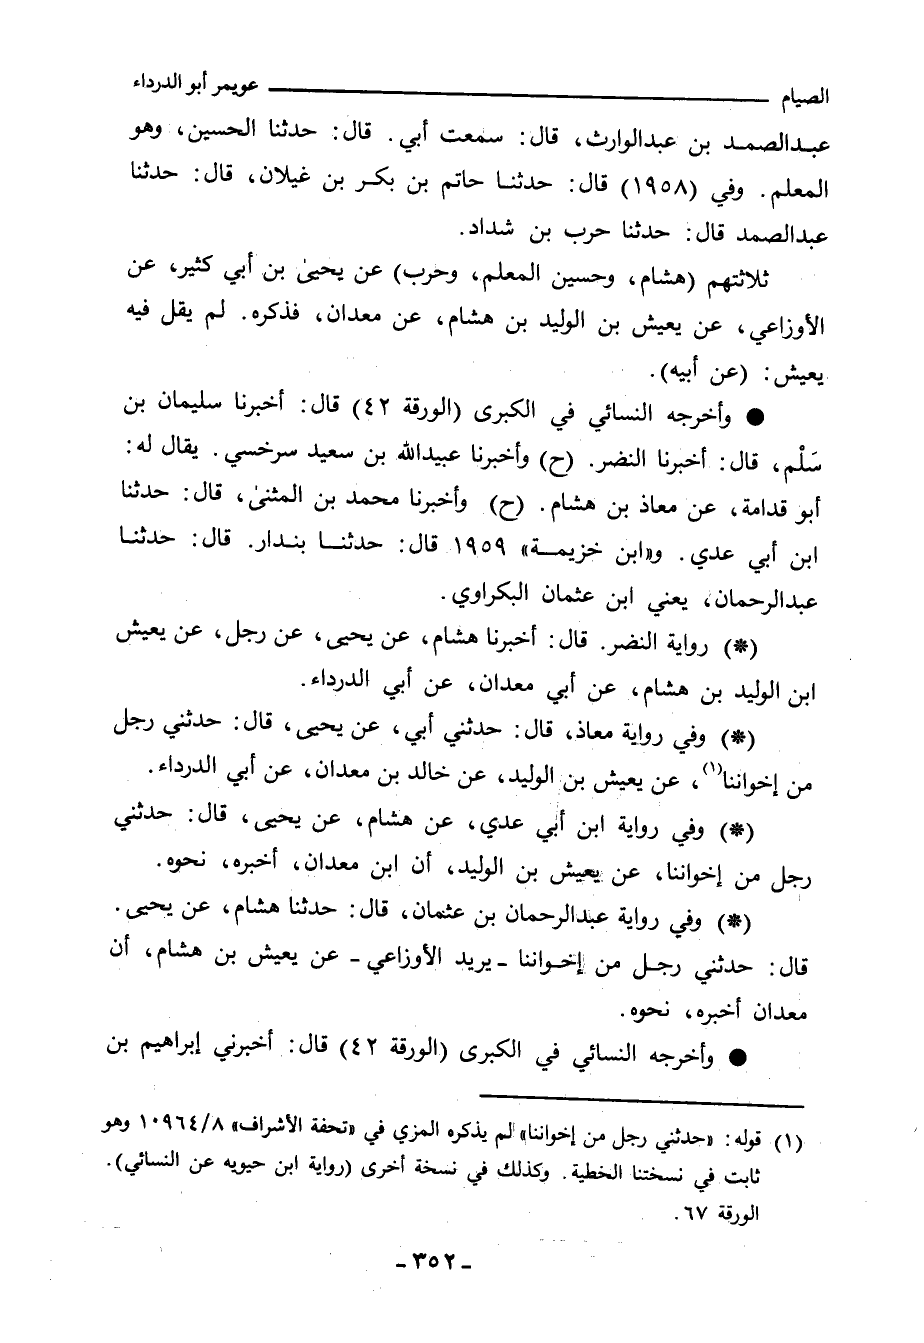 الصيام ــــــــــــ عويمر أبو الدرداء
عبـدالصمـد بن عبدالوارث، قال: سمعت أبي. قال: حدثنا الحسين، وهو
المعلم. وفي (١٩٥٨) قال: حدثنـا حاتم بن بكـر بن غيلان، قال: حدثنا
عبدالصمد قال: حدثنا حرب بن شداد.
ثلاثتهم (هشام، وحسين المعلم، وحرب) عن يحيىٰ بن أبي كثير، عن
الأوزاعي، عن يعيش بن الوليد بن هشام، عن معدان، فذكره. لم يقل فيه
يعيش: (عن أبيه).
● وأخرجه النسائي في الكبرى (الورقة ٤٢) قال: أخبرنا سليمان بن
سَلْم، قال: أخبرنا النضر. (ح) وأخبرنا عبيدالله بن سعيد سرخسي. يقال له:
أبو قدامة، عن معاذ بن هشام. (ح) وأخبرنا محمد بن المثنىٰ، قال: حدثنا
ابن أبي عدي. و«ابن خزيمـة» ١٩٥٩ قال: حدثنـا بنـدار. قال: حدثنـا
عبدالرحمان، يعني ابن عثمان البكراوي.
(*) رواية النضر. قال: أخبرنا هشام، عن يحيى، عن رجل، عن يعيش
ابن الوليد بن هشام، عن أبي معدان، عن أبي الدرداء.
(*) وفي رواية معاذ، قال: حدثني أبي، عن يحيى، قال: حدثني رجل
من إخواننا(١)، عن يعيش بن الوليد، عن خالد بن معدان، عن أبي الدرداء.
(*) وفي رواية ابن أبي عدي، عن هشام، عن يحيى، قال: حدثني
رجل من إخواننا، عن يعيش بن الوليد، أن ابن معدان، أخبره، نحوه.
(*) وفي رواية عبدالرحمان بن عثمان، قال: حدثنا هشام، عن يحيى.
قال: حدثني رجـل من إخـواننا ـ يريد الأوزاعي ـ عن يعيش بن هشام، أن
معدان أخبره، نحوه.
● وأخرجه النسائي في الكبرى (الورقة ٤٢) قال: أخبرني إبراهيم بن
(١) قوله: «حدثني رجل من إخواننا» لم يذكره المزي في «تحفة الأشراف» ١٠٩٦٤/٨ وهو
ثابت في نسختنا الخطية. وكذلك في نسخة أخرى (رواية ابن حيويه عن النسائي).
الورقة ٦٧.
ـ ٣٥٢ ـ